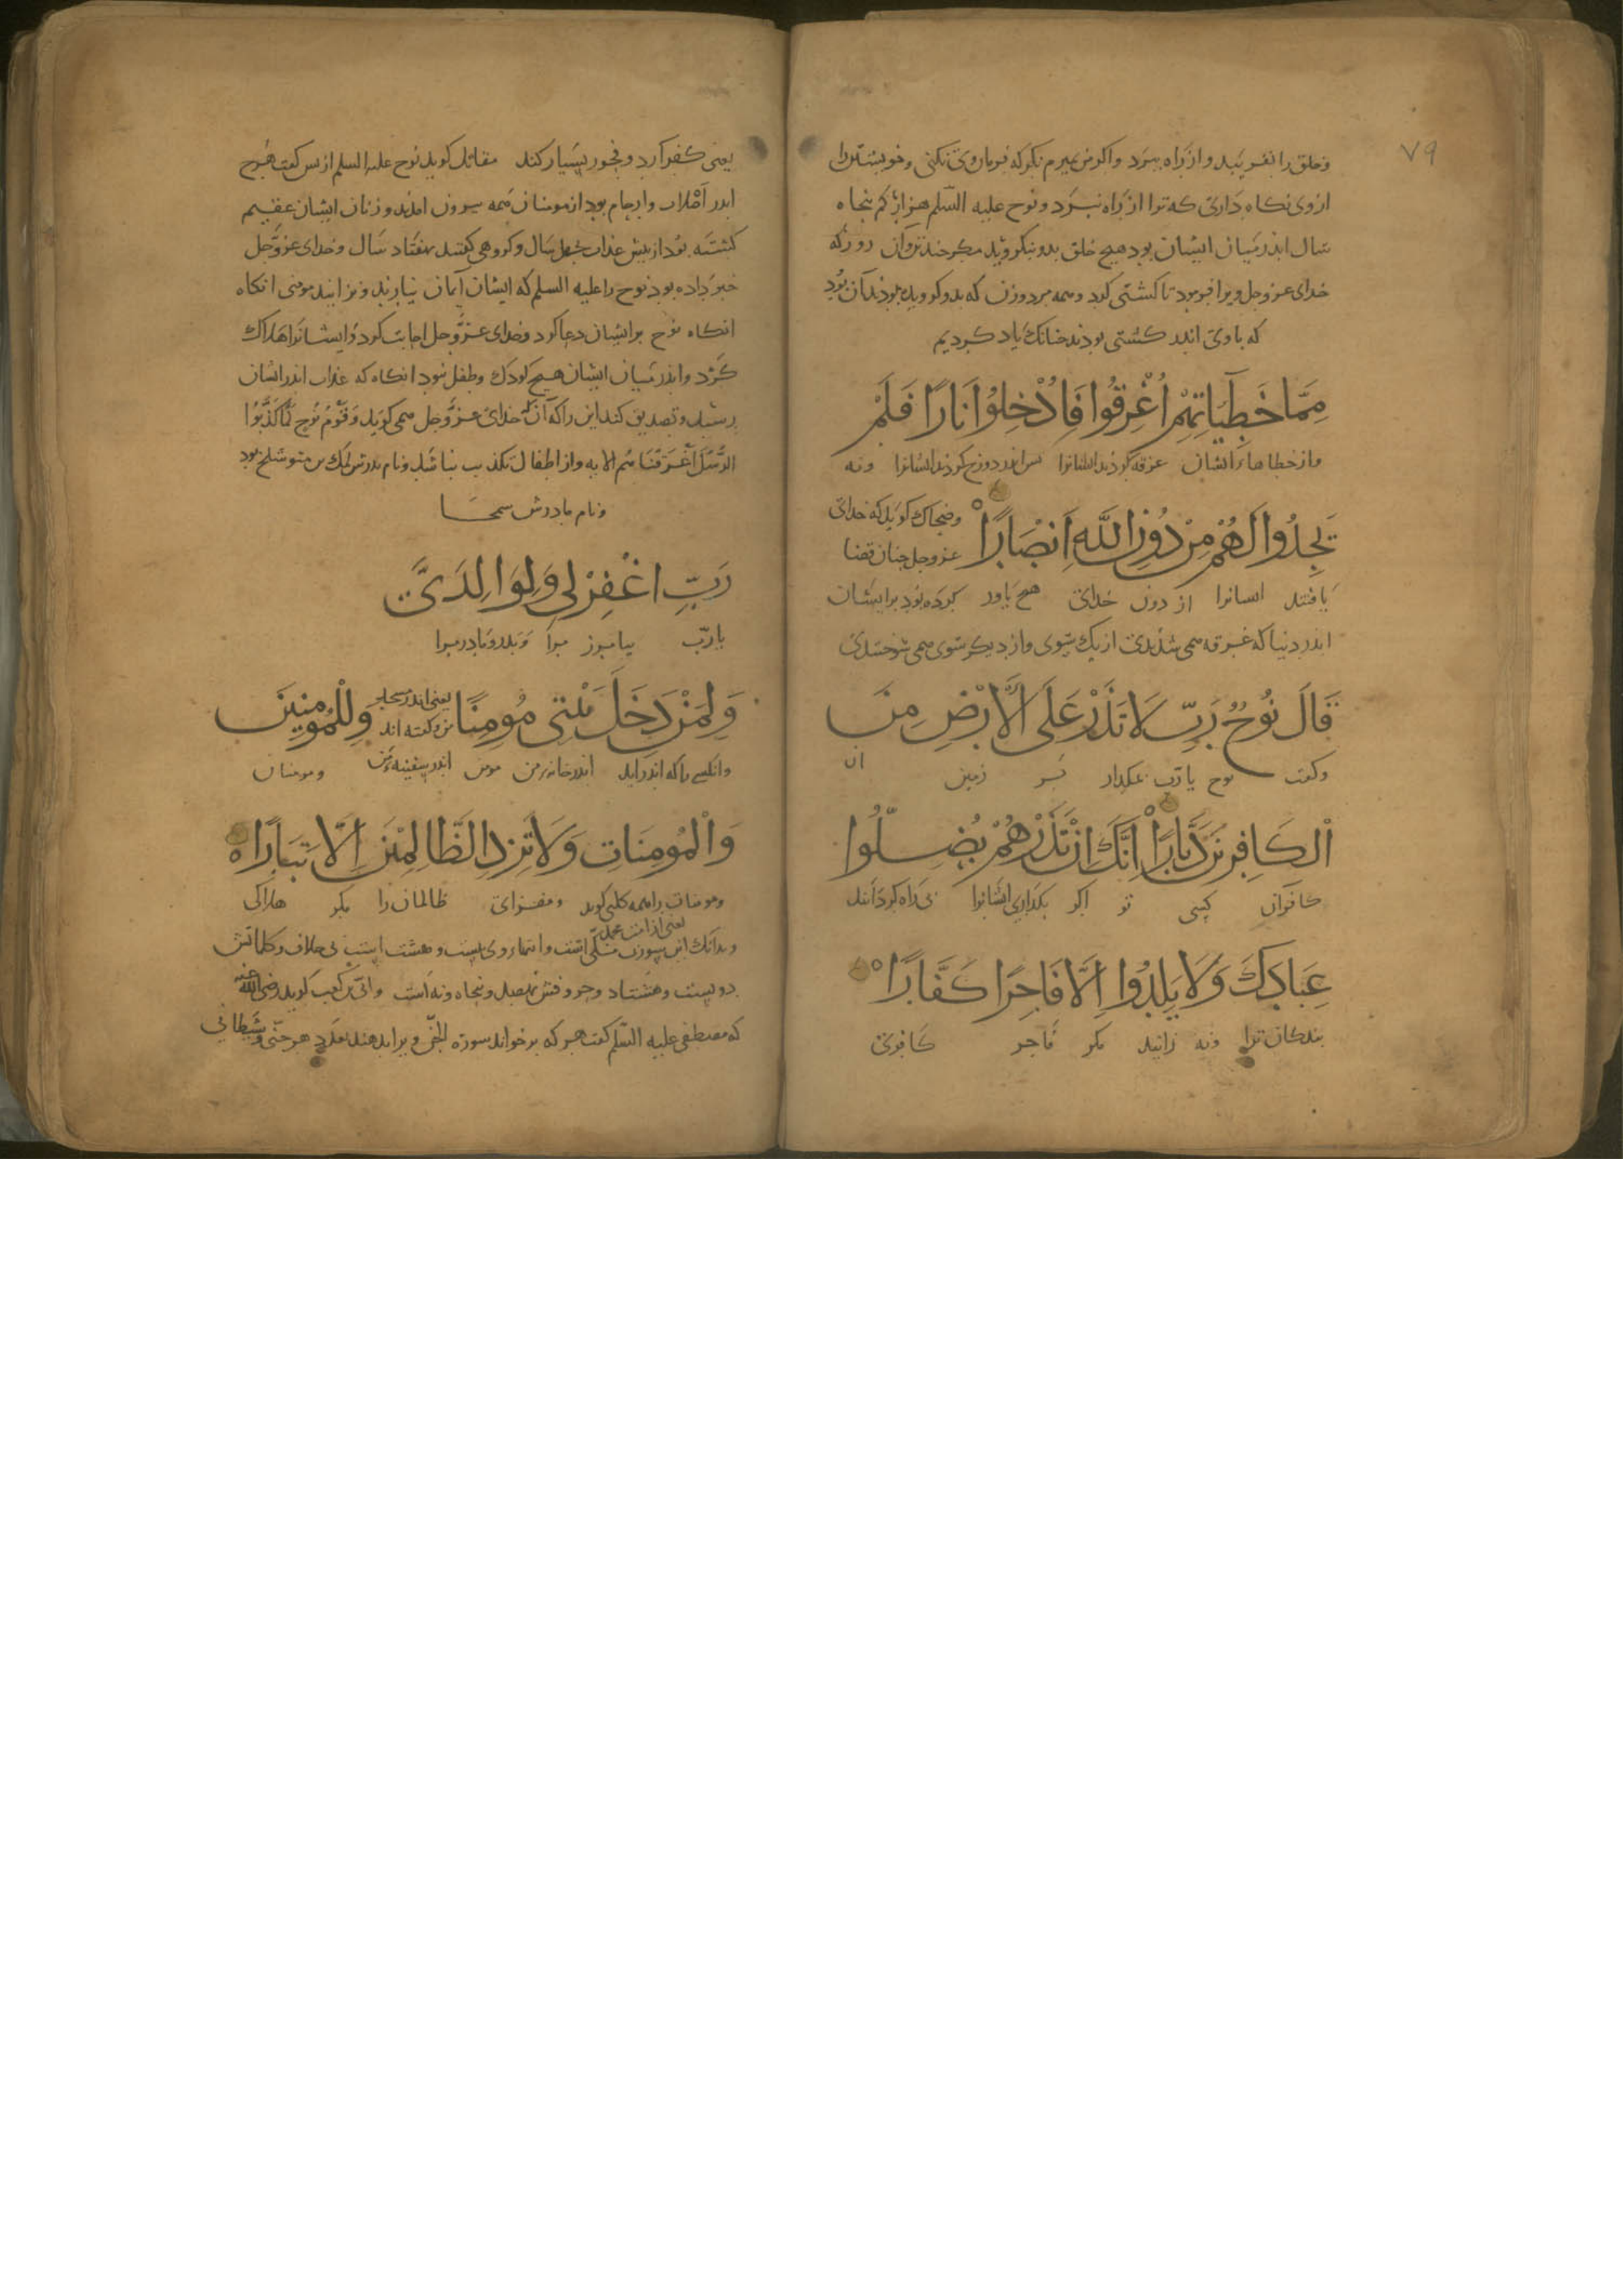 ۷۹
وخلق را بفریبد واز راه ببرد واکر من بمیرم نکر که فرمان وی نکنی وخویشتن را
از وی نکاه داری که ترا از راه نبرد ونوح علیه السلم هزار کم بنجاه
سال اندر میان ایشان بود هیچ خلق بدو نکروید مکر
خدای عز وجل ویرا فرمود تا کشتی کرد وهمه مرد وزن که بدو کرویده بودند آن بود
که باوی اندر کشتی بودند جنانک یاد کردیم
مِمَّا خَطِيَاتِهِمْ اُغْرِقُوا فَاُدْخِلُوْا نَارًا فَلَمْ
واز خطاهاء ایشان غرقه کردند ایشانرا بس اندر دوزخ کردند ایشانرا ونه
يَجِدُوا لَهُمْ مِنْ دُوْنِ اللَّهِ اَنْصَارًا وضحاک کوید که خدای
عز وجل جنان قضا
یافتند ایشانرا از دون خدای هیچ یاور کرده بود بر ایشان
اندر دنیا که غرقه همی شدندی از یک سوی واز دیکر سوی همی سوختندی
قَالَ نُوْحٌ رَبِّ لَا تَذَرْ عَلَى الْاَرْضِ مِنَ
وکفت نوح یا رب مکذار بر زمین از
الْكَافِرِيْنَ دَيَّارًا اِنَّكَ اِنْ تَذَرْهُمْ يُضِلُّوا
کافران کسی تو اکر بکذاری ایشانرا بی راه کردانند
عِبَادَكَ وَلَا يَلِدُوا اِلَّا فَاجِرًا كَفَّارًا
بندکان ترا ونه زایند مکر فاجر کافری
یعنی کفر آرد وفجور بسیار کند مقاتل کوید نوح علیه السلم از بس کفت هرچ
اندر اصلاب وارحام بود از مومنان همه بیرون امدند وزنان ایشان عقیم
کشته بود از بیش عذاب بجهل سال وکروهی کفتند بهفتاد سال وخدای عز وجل
خبر داده بود نوح را علیه السلم که ایشان ایمان نیارند ونزایند مومنی انکاه
انکاه نوح بر ایشان دعا کرد وخدای عز وجل اجابت کرد وایشانرا هلاک
کرد واندر میان ایشان هیچ کودک وطفل نبود انکاه که عذاب اندر ایشان
برسید وتصدیق کند این را که آنک خدای عز وجل همی کوید وَقَوْمَ نُوحٍ لَمَّا كَذَّبُوا
الرُّسُلَ اَغْرَقْنَاهُمْ الایه واز اطفال تکذیب نباشد ونام بدرش لمک بن متوشلخ بود
ونام مادرش سمحا
رَبِّ اغْفِرْ لِي وَلِوَالِدَيَّ
یا رب بیامرز مرا وبدر ومادر مرا
وَلِمَنْ دَخَلَ بَيْتِيَ مُومِنًا یعنی اندر مسجد من وکفته اند وَلِلْمُومِنِيْنَ
وانکس را که اندر اید اندر خانه من مومن اندر سفینه من ومومنان
وَالْمُومِنَاتِ وَلَا تَزِدِ الظَّالِمِيْنَ اِلَّا تَبَارًا
ومومنات را همه کلبی کوید ومفزای ظالمان را مکر هلاکی
وبدانک این سورت مکی است وایتهاء وی بیست وهشت ایت بی خلاف وکلماتش
دویست وهشتاد وحروفش نهصد وبنجاه ونه است وابی بن کعب کوید رضی الله عنه
که مصطفی علیه السلم کفت هر که برخواند سورة الجن ویرا بدهند بعدد هر جنی وشیطانی